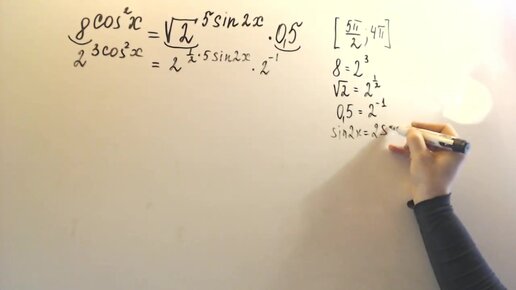 8^{cos²x} = √2^{5sin2x} · 0,5
2^{3cos²x} = 2^{½·5sin2x} · 2^{-1}
[5π/2; 4π]
8 = 2³
√2 = 2^{½}
0,5 = 2^{-1}
sin2x = 2s